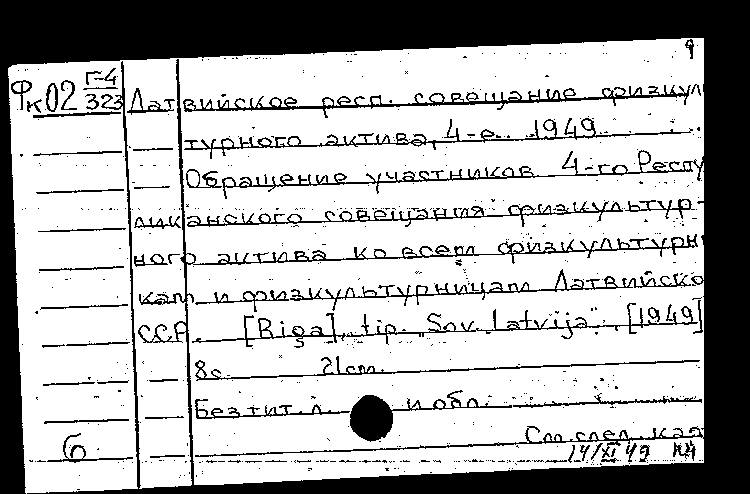 9
Фк02 Г-4/323 Латвийское респ. совещание физкул
турного актива, 4-е. 1949
Обращение участников 4-го Респу
ликанского совещания физкультур-
ного актива ко всем физкультурни
кам и физкультурницам Латвийско
ССР. [Riga], tip. "Sov. Latvija", [1949]
8с. 21см.
Без тит. л. и обл.
См. след. кар
б 14/XI 49